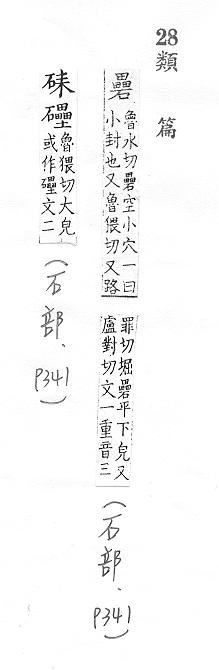 28類篇
礨魯水切礨空小穴一曰
小封也又魯猥切又路
罪切堀礨平下皃又
盧對切文一重音三
(石部.
P341)
硉礧魯猥切大皃
或作礧文二
(石部.
P341)